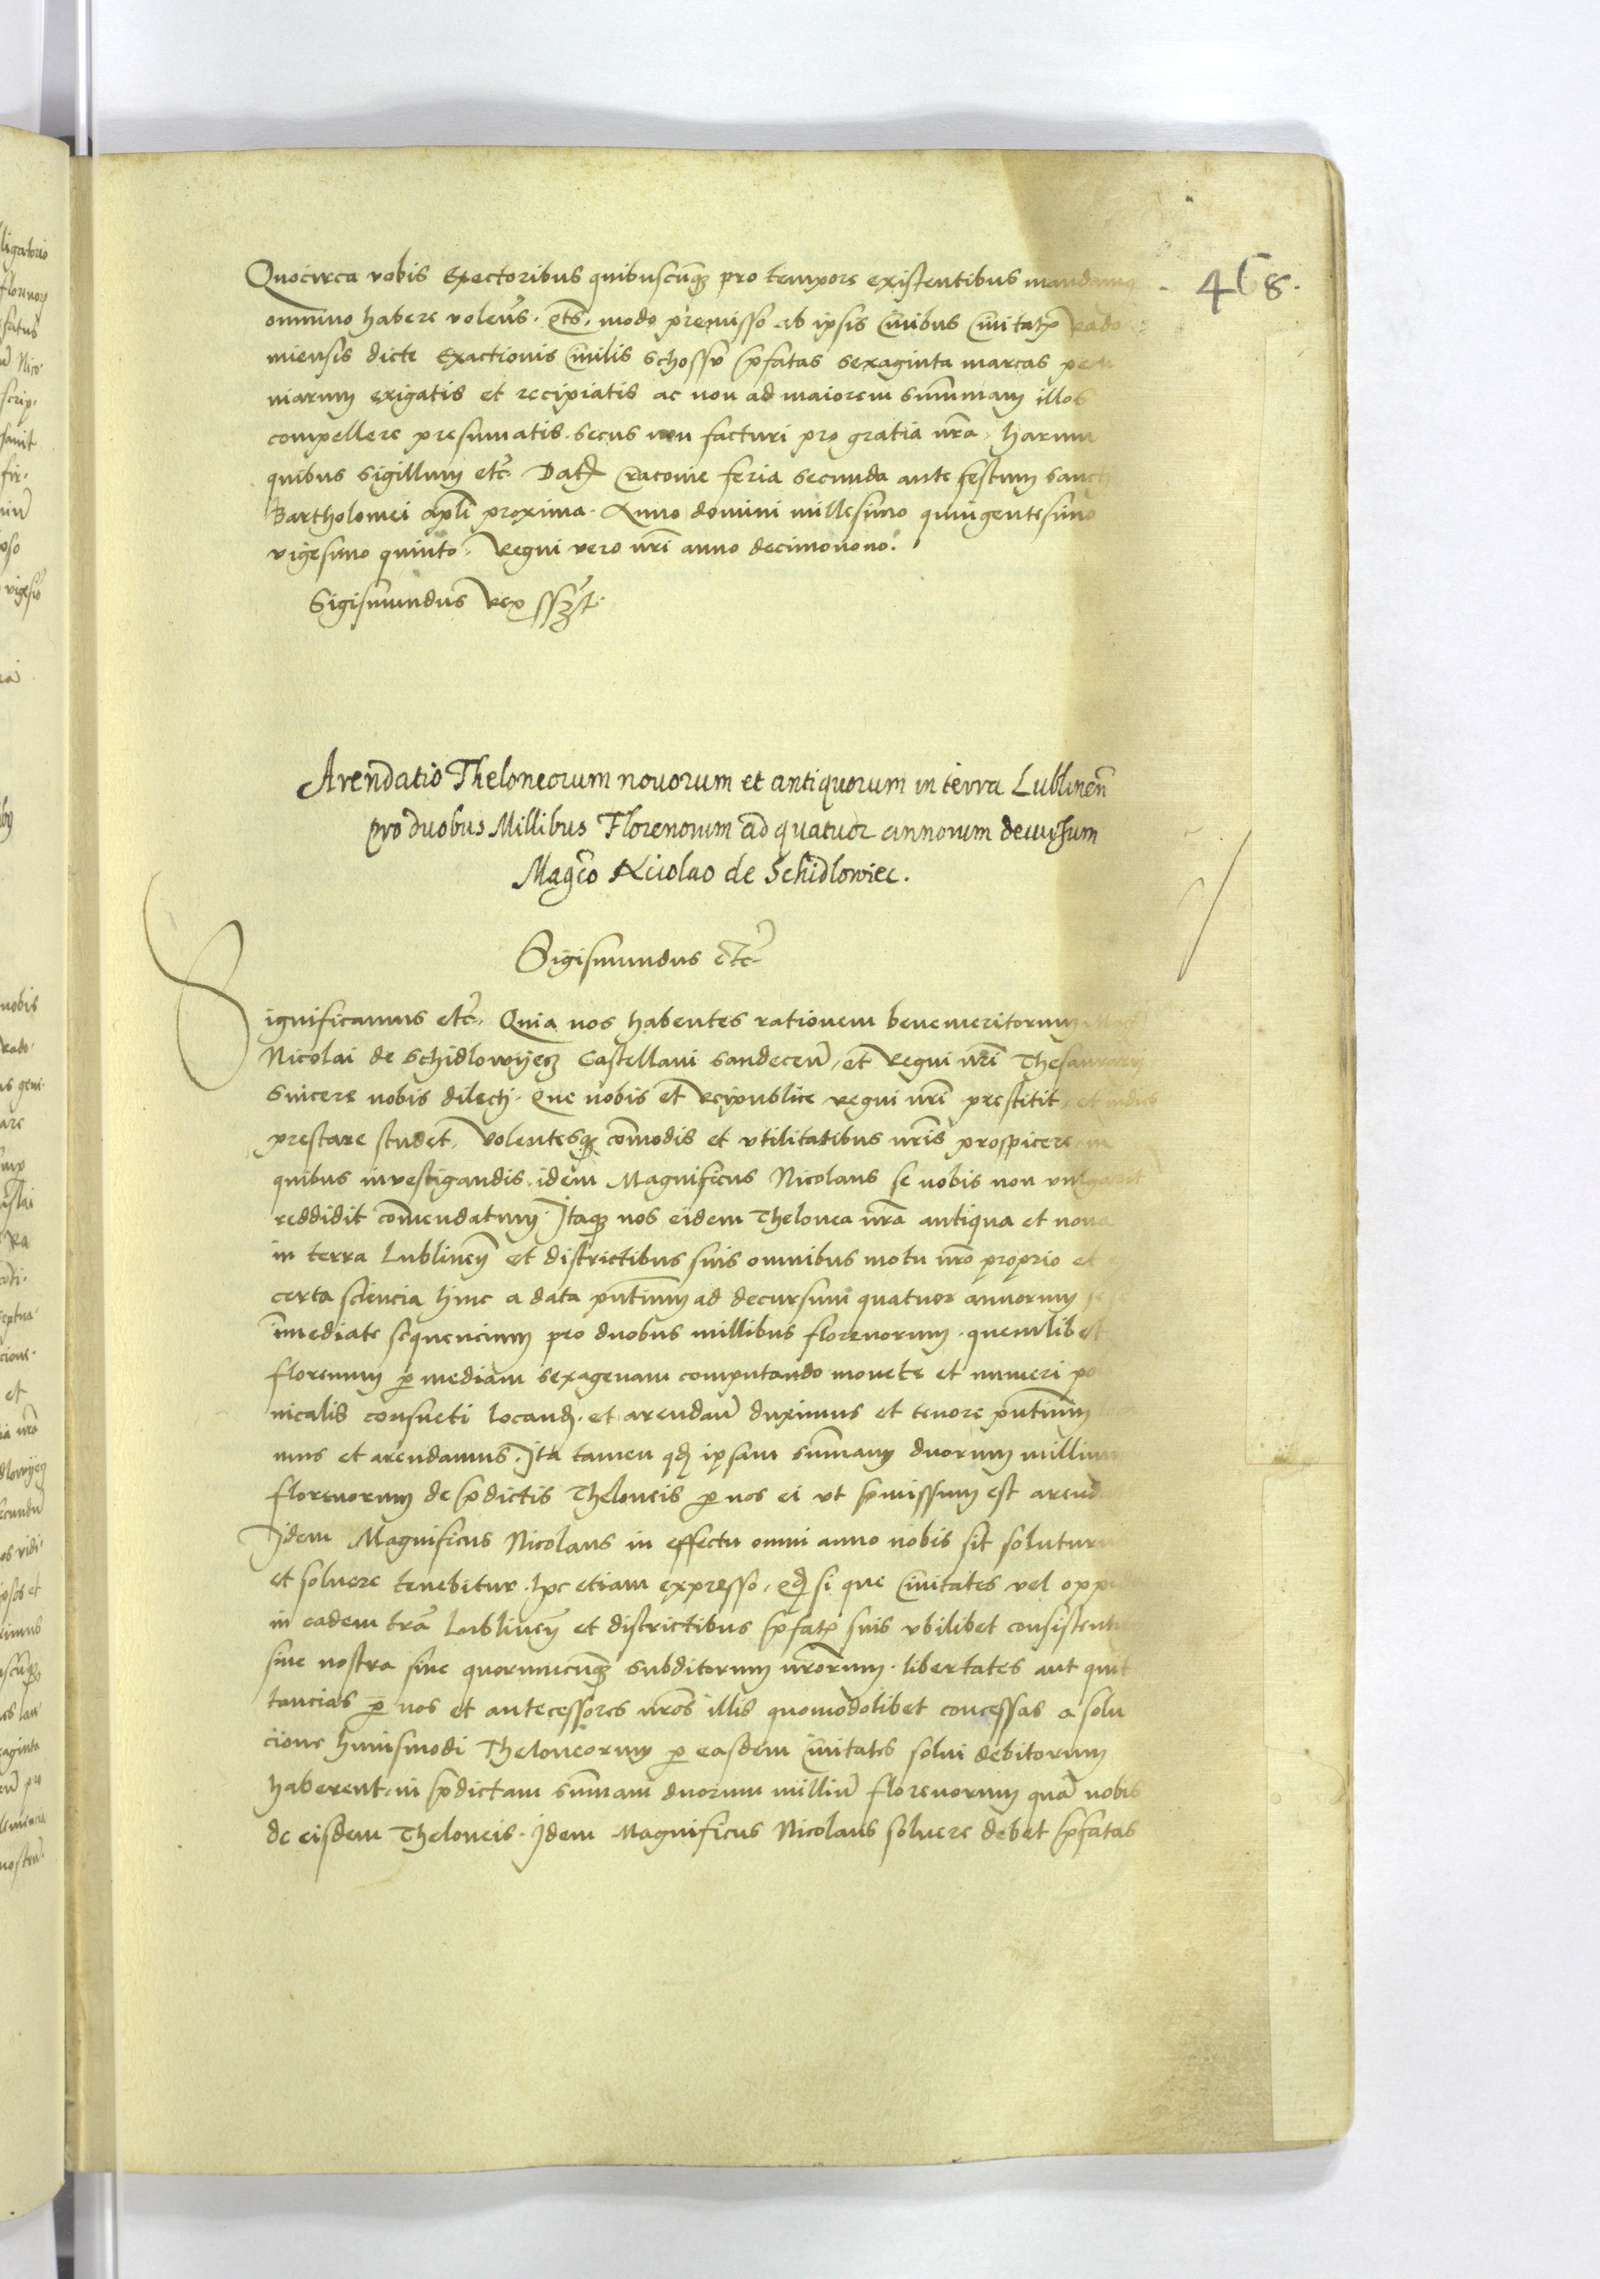 468.
Quocirca vobis Exactoribus quibuscunq pro tempore existentibus mandamus
omnino habere volen̄s. etc̄. modo premisso ab ipsis Civibus Civitatis Rado
miensis dicte Exactionis Civilis Schossū p̄fatas sexaginta marcas pecu
niarum exigatis et recipiatis ac non ad maiorem summam illos
compellere presumatis. secus non facturi pro gratia nr̄a. Harum
quibus sigillum etc̄. Dat̄ Cracovie feria secunda ante festum sancti
Bartholomei Apl̄i proxima. Anno domini millesimo quingentesimo
vigesimo quinto. Regni vero nr̄i anno decimonono.
Sigismundus Rex sszt.
Arendatio Theloneorum novorum et antiquorum in terra Lublinen̄
pro duobus Millibus Florenorum ad quatuor annorum decursum
Magc̄o Nicolao de Schidlowiec.
Sigismundus etc̄.
Significamus etc̄. Quia nos habentes rationem benemeritorum Mag
Nicolai de Schidlowyecz Castellani Sandecen̄, et Regni nr̄i Thesaurarij
sincere nobis dilecti. Que nobis et Reipublice regni nr̄i prestitit, et indies
prestare studet, Volentesq com̄odis et utilitatibus nr̄is prospicere in
quibus investigandis, idem Magnificus Nicolaus se nobis non vulgariter
reddidit com̄endatum. Itaq nos eidem Thelonea nr̄a antiqua et nova
in terra Lublinen̄ et districtibus suis omnibus motu nr̄o proprio et
certa sciencia hinc a data pn̄tium ad decursum quatuor annorum
im̄ediate sequencium pro duobus millibus florenorum. quemlibet
florenum p mediam sexagenam computando monete et numeri po
nicalis consueti locand̄. et arendan̄ duximus et tenore pn̄tium loca
mus et arendamus. Ita tamen qd̄ ipsam sum̄am duorum millium
florenorum de p̄dictis Theloneis p nos ei ut p̄missum est arend
Idem Magnificus Nicolaus in effectu omni anno nobis sit soluturus
et solvere tenebitur. Hoc etiam expresso, qd̄ si que Civitates vel oppida
in eadem tr̄a Lublinen̄ et districtibus p̄fatis suis ubilibet consistentia
sive nostra sive quorumcunq subditorum nr̄orum. libertates aut quit
tancias p nos et antecessores nr̄os illis quomodolibet concessas a solu
cione huiusmodi Theloneorum p easdem Civitates solvi debitorum
haberent, in p̄dictam sum̄am duorum milliū florenorum quā nobis
de eisdem Theloneis. Idem Magnificus Nicolaus solvere debet p̄fatas